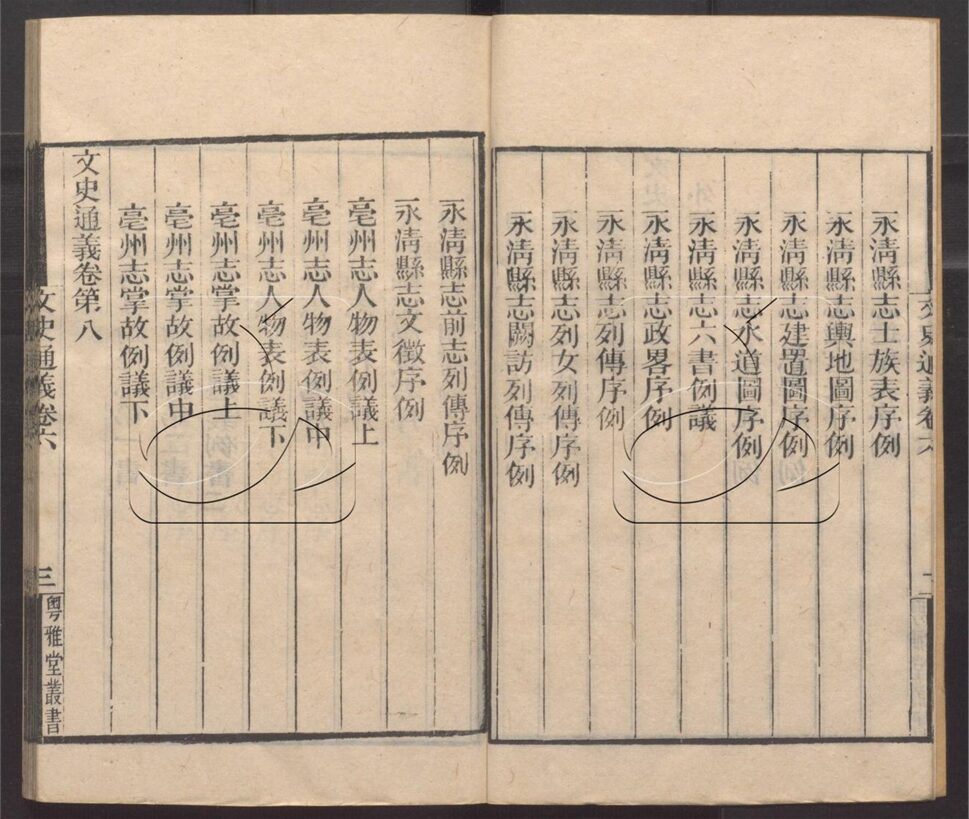 永淸縣志士族表序例
永淸縣志輿地圖序例
永淸縣志建置圖序例
永淸縣志水道圖序例
永淸縣志六書例議
永淸縣志政畧序例
永淸縣志列傳序例
永淸縣志列女列傳序例
永淸縣志闕訪列傳序例
永淸縣志前志列傳序例
永淸縣志文徵序例
亳州志人物表例議上
亳州志人物表例議中
亳州志人物表例議下
亳州志掌故例議上
亳州志掌故例議中
亳州志掌故例議下
文史通義卷第八
文史通義卷六
三
粵雅堂叢書